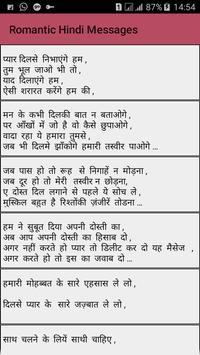 14:54
Romantic Hindi Messages
प्यार दिलसे निभाएंगे हम ,
तुम भूल जाओ भी तो ,
याद दिलाएंगे हम ,
ऐसी शरारत करेंगे हम की .
मन के कभी दिलकी बात न बताओगे ,
पर आँखों में जो है वो कैसे छुपाओगे ,
वादा रहा ये हमारा तुमसे ,
जब भी दिलमे झाँकोगे हमारी तस्वीर पाओगे ...
जब पास हो तो रूह से निगाहें न मोड़ना ,
जब दूर हो तो मेरी तस्वीर न छोड़ना,
ए दोस्त दिल लगाने से पहले ये सोच ले ,
मुश्किल बहुत है रिश्तोंकी ज़ंजीरें तोडना .
हम ने सुबूत दिया अपनी दोस्ती का ,
अब आप अपनी दोस्ती का हिसाब दो ,
अगर नहीं करते हो प्यार तो डिलीट कर दो यह मैसेज ,
अगर करते हो तो इस का जवाब दो ...
हमारी मोहब्बत के सारे एहसास ले लो ,
दिलसे प्यार के सारे जज़्बात ले लो ,
साथ चलने के लियें साथी चाहिए ,